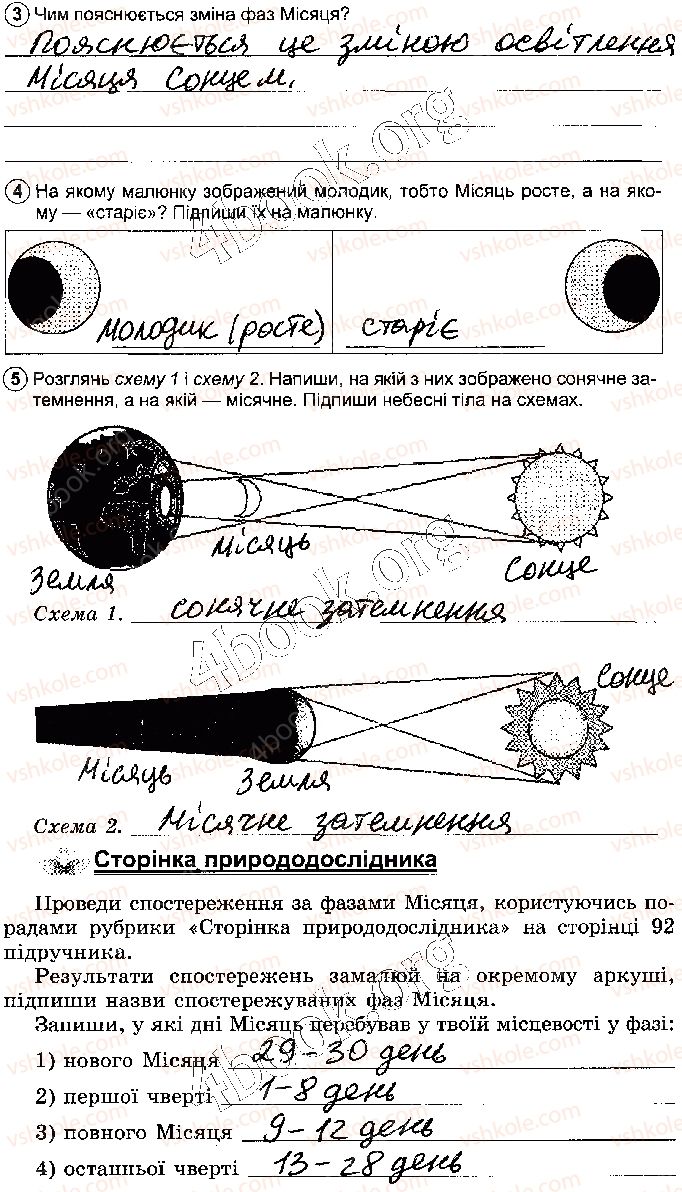 3 Чим пояснюється зміна фаз Місяця?
Пояснюється це зміною освітлення
Місяця Сонцем.
4 На якому малюнку зображений молодик, тобто Місяць росте, а на яко-
му — «старіє»? Підпиши їх на малюнку.
молодик (росте) старіє
5 Розглянь схему 1 і схему 2. Напиши, на якій з них зображено сонячне за-
темнення, а на якій — місячне. Підпиши небесні тіла на схемах.
Місяць
Сонце
Земля
Схема 1. сонячне затемнення
Сонце
Місяць Земля
Схема 2. Місячне затемнення
Сторінка природодослідника
Проведи спостереження за фазами Місяця, користуючись по-
радами рубрики «Сторінка природодослідника» на сторінці 92
підручника.
Результати спостережень замалюй на окремому аркуші,
підпиши назви спостережуваних фаз Місяця.
Запиши, у які дні Місяць перебував у твоїй місцевості у фазі:
1) нового Місяця 29-30 день
2) першої чверті 1-8 день
3) повного Місяця 9-12 день
4) останньої чверті 13-28 день
4book.org
vshkole.com